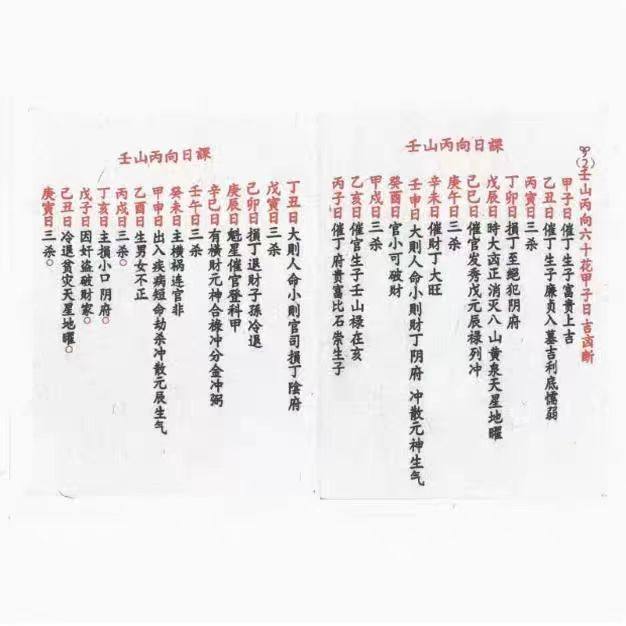 (2)壬山丙向六十花甲子日吉凶断
壬山丙向日課
甲子日催丁生子富貴上吉
乙丑日催丁生子廉貞入墓吉利底懦弱
丙寅日三杀
丁卯日損丁至絕犯阴府
戊辰日時大凶正消灭八山黄泉天星地曜
己巳日催官发秀戊元辰禄列冲
庚午日三杀
辛未日催財丁大旺
壬申日大則人命小則財丁阴府 冲散元神生气
癸酉日官小可破財
甲戌日三杀
乙亥日催官生子壬山禄在亥
丙子日催丁府貴富比石崇生子
壬山丙向日課
丁丑日大則人命小則官司損丁陰府
戊寅日三杀
己卯日損丁退財子孫冷退
庚辰日魁星催官登科甲
辛巳日有橫財元神合祿冲分金冲弼
壬午日三杀
癸未日主横祸连官非
甲申日出入疾病短命劫杀冲散元辰生气
乙酉日生男女不正
丙戌日三杀。
丁亥日主損小口阴府。
戊子日因奸盗破財家。
己丑日冷退贫灾天星地曜。
庚寅日三杀。